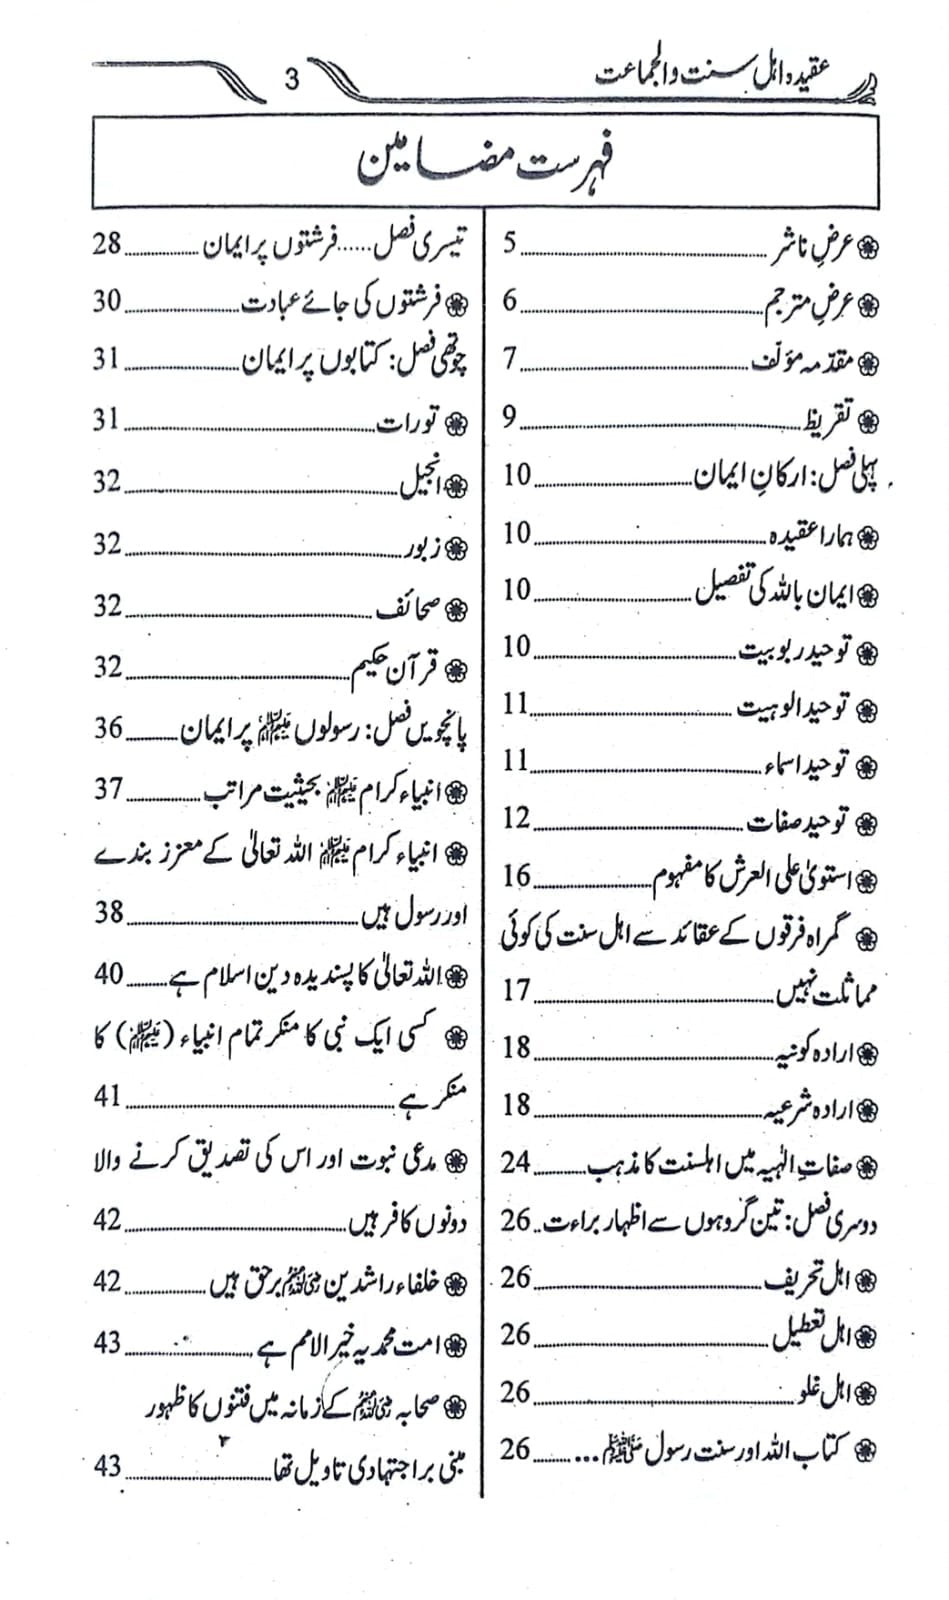 عقیدہ اہل سنت والجماعت
3
فہرست مضامین
❀ عرضِ ناشر ............ 5
❀ عرضِ مترجم ............ 6
❀ مقدّمہ مؤلّف ............ 7
❀ تقریظ ............ 9
پہلی فصل: ارکانِ ایمان ............ 10
❀ ہمارا عقیدہ ............ 10
❀ ایمان باللہ کی تفصیل ............ 10
❀ توحید ربوبیت ............ 10
❀ توحید الوہیت ............ 11
❀ توحید اسماء ............ 11
❀ توحید صفات ............ 12
❀ استویٰ علی العرش کا مفہوم ............ 16
❀ گمراہ فرقوں کے عقائد سے اہل سنت کی کوئی
مماثلت نہیں ............ 17
❀ ارادہ کونیہ ............ 18
❀ ارادہ شرعیہ ............ 18
❀ صفاتِ الٰہیہ میں اہلسنت کا مذہب ............ 24
دوسری فصل: تین گروہوں سے اظہار براءت .. 26
❀ اہل تحریف ............ 26
❀ اہل تعطیل ............ 26
❀ اہل غلو ............ 26
❀ کتاب اللہ اور سنت رسول ﷺ ... ............ 26
تیسری فصل ...... فرشتوں پر ایمان ............ 28
❀ فرشتوں کی جائے عبادت ............ 30
چوتھی فصل: کتابوں پر ایمان ............ 31
❀ تورات ............ 31
❀ انجیل ............ 32
❀ زبور ............ 32
❀ صحائف ............ 32
❀ قرآن حکیم ............ 32
پانچویں فصل: رسولوں علیہم السلام پر ایمان ............ 36
❀ انبیاء کرام علیہم السلام بحیثیت مراتب ............ 37
❀ انبیاء کرام علیہم السلام اللہ تعالیٰ کے معزز بندے
اور رسول ہیں ............ 38
❀ اللہ تعالیٰ کا پسندیدہ دین اسلام ہے ............ 40
❀ کسی ایک نبی کا منکر تمام انبیاء (علیہم السلام) کا
منکر ہے ............ 41
❀ مدعی نبوت اور اس کی تصدیق کرنے والا
دونوں کافر ہیں ............ 42
❀ خلفاء راشدین رضی اللہ عنہم برحق ہیں ............ 42
❀ امت محمدیہ خیر الامم ہے ............ 43
❀ صحابہ رضی اللہ عنہم کے زمانہ میں فتنوں کا ظہور
مبنی بر اجتہادی تاویل تھا ............ 43